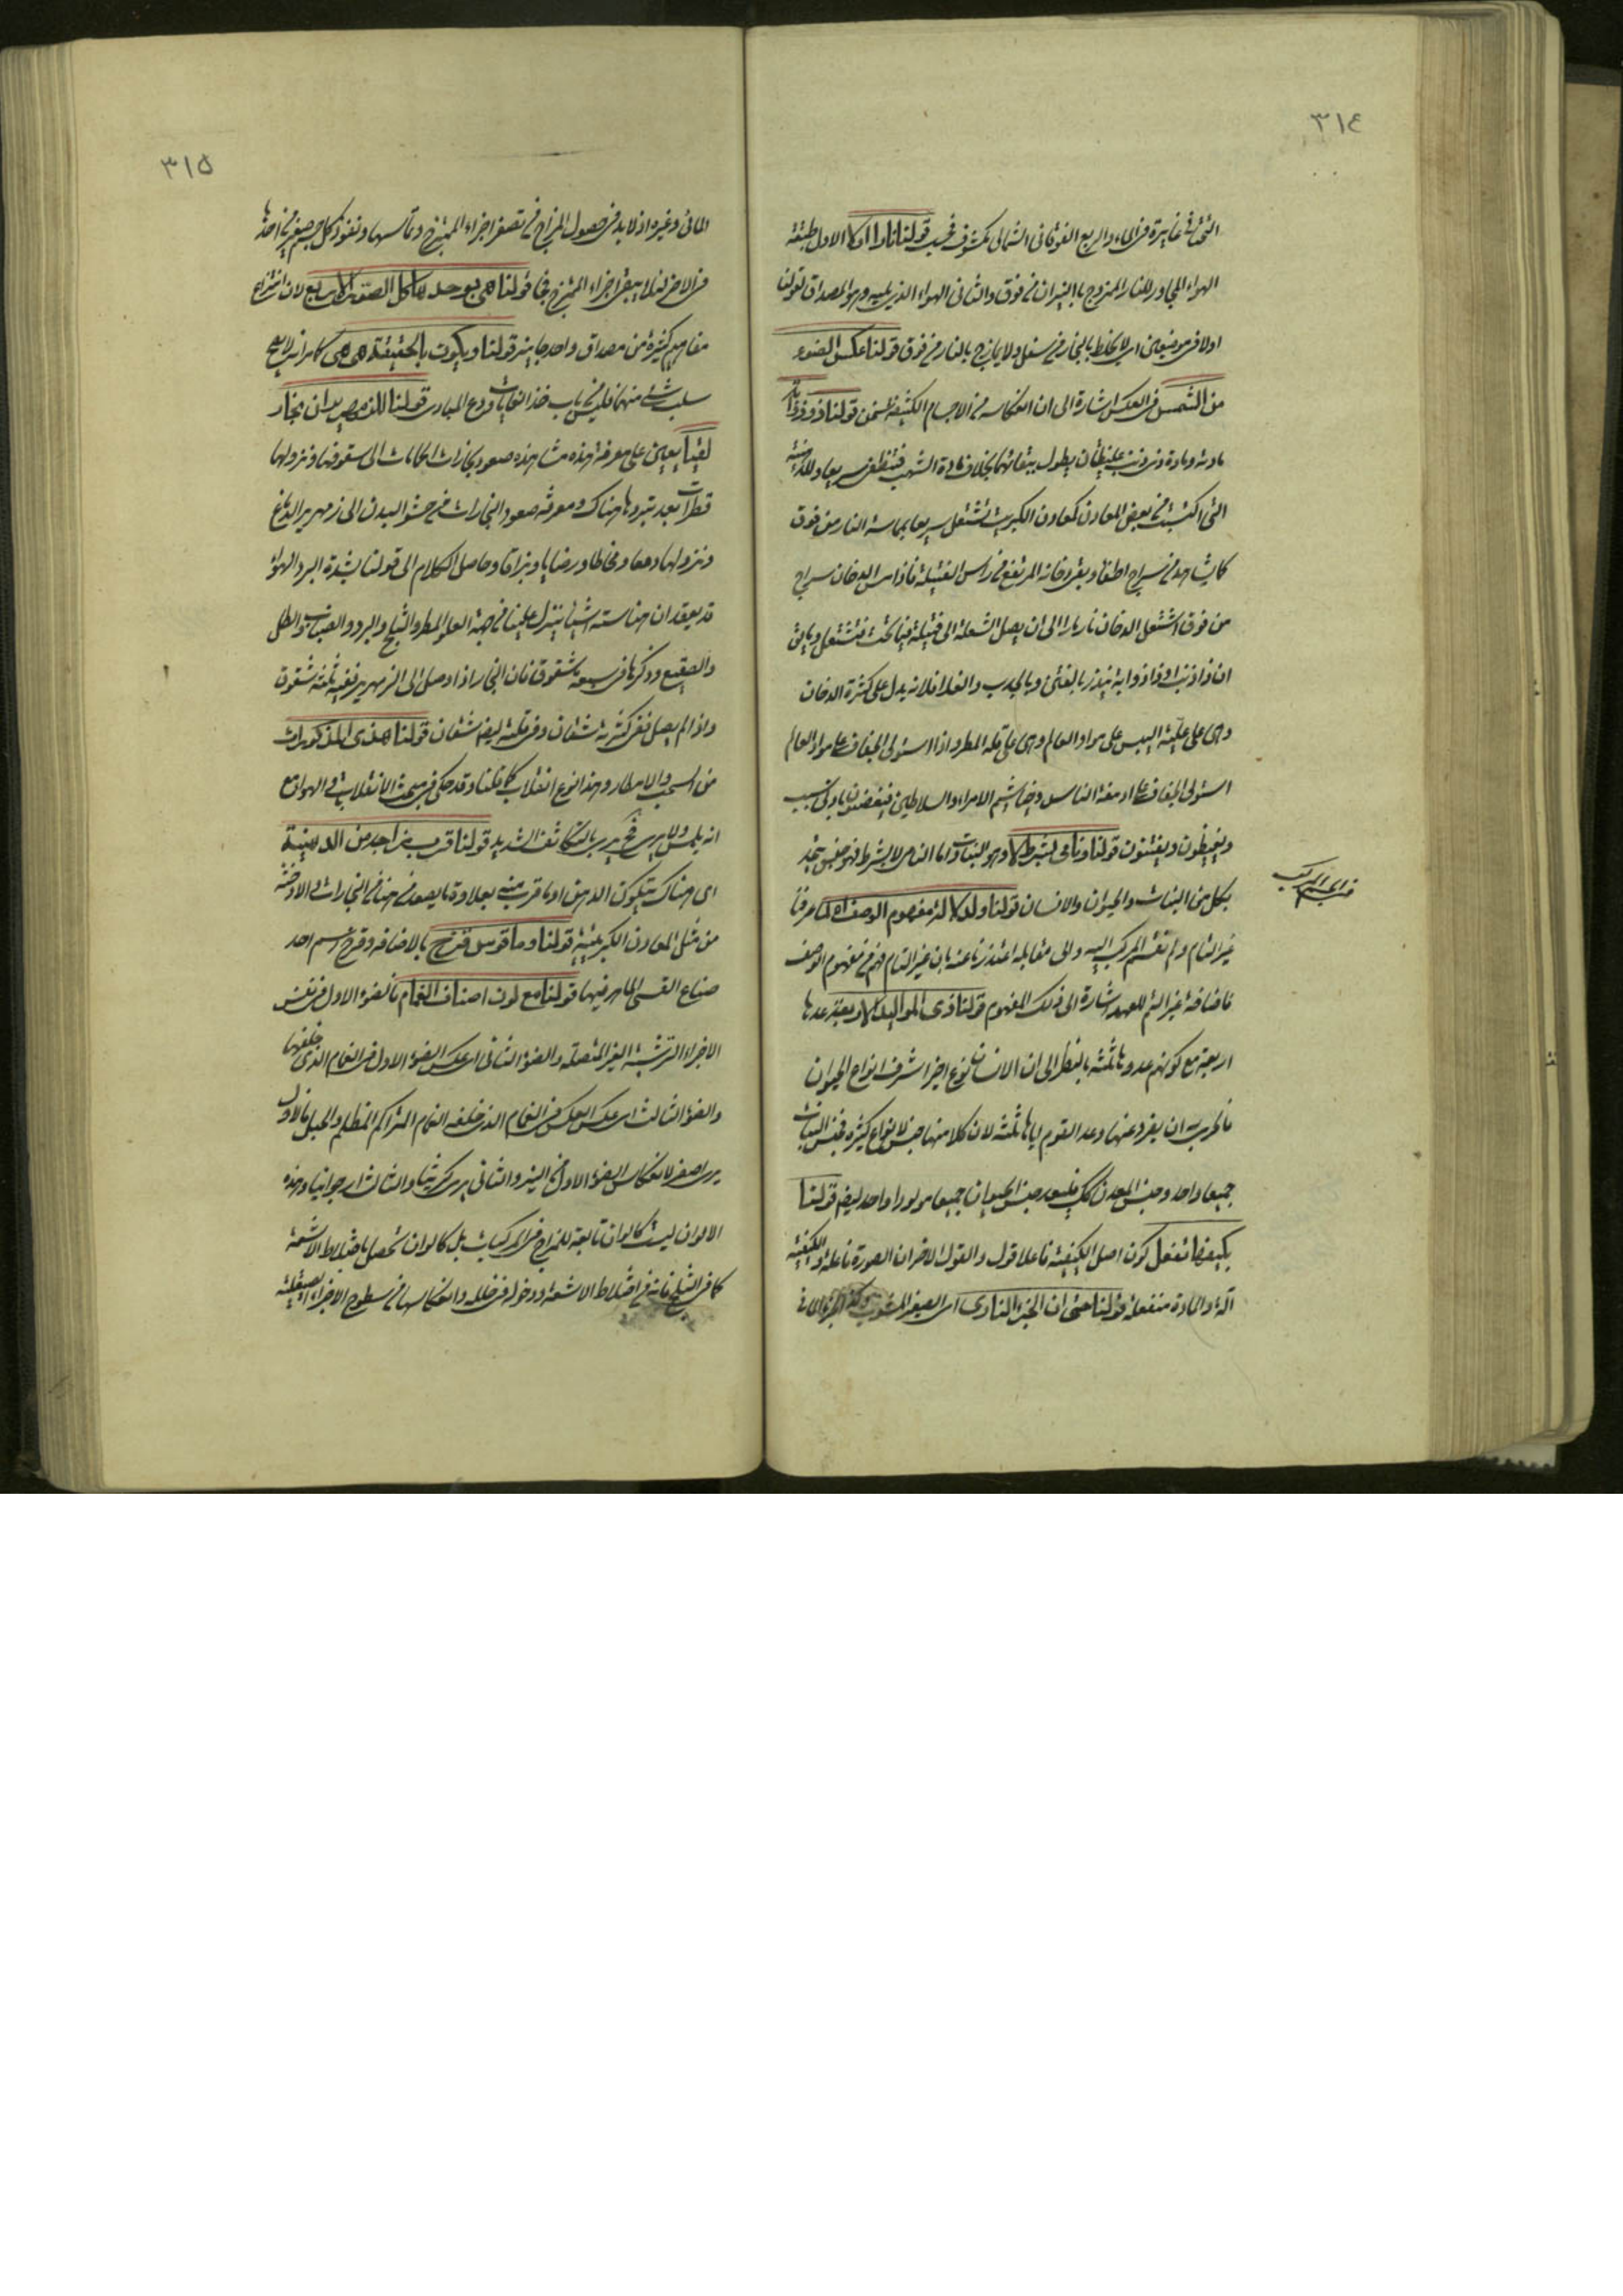 ٣١٤
غايرة فى الماء والربع الفوقانى الشمالى مكشوف قولنا نارا اولا الاول طبقة
الهواء المجاور للنار الممزوج بالنيران من فوق والثانى الهواء الذى يليه وهو المصداق لقولنا
اولا فى موضعين اى لا يخلط بالبخار من سفل ولا يمازج بالنار من فوق قولنا عكس الضوء
من الشمس فى العكس اشارة الى ان انعكاسه من الاجسام الكثيفة قولنا ذو ذوابة
مادته ومادة ذى ذنب غليظتان يطول بقائهما بخلاف مادة الشهب فتنطفى سريعا
التى اكتسبت من بعض المعادن كمعادن الكبريت تشتعل سريعا بمماسة النار من فوق
كما يشاهد فى سراج اطفأ وبقى دخانه المرتفع من راس الفتيلة فاذا مس الدخان سراج
من فوق اشتعل الدخان نازلا الى ان يصل الشعلة الى فتيلة فيما تحت فتشتعل
ان ذا ذنب او ذا ذوابة ينذر بالفتن وبالجدب والغلاء فلانه يدل على كثرة الدخان
وهى على غلبة اليبس على مواد العالم وهى على قلة المطر واذا استولى الجفاف على مواد العالم
استولى الجفاف على ادمغة الناس وخياشيم الامراء والسلاطين فيغضبون بادنى سبب
ويغيظون ويفتنون قولنا ونامى بشرط لا وهو النبات واما النامى لا بشرط فهو جنس يتحد
بكل من النبات والحيوان والانسان قولنا ولدلالة مفهوم الوصف لما عرفنا
غير التام ولم نقسم المركب اليه والى مقابله اعتذرنا عنه بان غير التام فهم من مفهوم الوصف
فاضافة غير التم للعهد اشارة الى ذلك المفهوم قولنا ذى المواليد الاربعة عدها
اربعة مع كونهم عدوها ثلثة بالنظر الى ان الانسان نوع اخير اشرف انواع الحيوان
فالحرى به ان يفرد عنها وعد القوم اياها ثلثة لان كلا منها جنس لانواع كثيرة فجنس النبات
جميعا واحد وجنس المعدن كك فليعد جنس الحيوان جميعا مولودا واحدا ايضا قولنا
بكيفها تفعل كون اصل الكيفية فاعلا قول والقول الاخر ان الصورة فاعلة والكيفية
آلة والمادة منفعلة قولنا حتى ان الجزء النارى اى الصغير
٣١٥
المائى وغيره اذ لا بد فى حصول المزاج من تصغر اجزاء الممتزج وتماسها ونفوذ كل جسم صغير فى احدها
من الاخر لئلا يبقى اجزاء الممتزج قولنا هى بوحدها كل الصور الاربع لان انتزاع
مفاهيم كثيرة من مصداق واحد جايز قولنا ويكون بالحقيقة هى هى كما مر انه لا يصح
سلب شئ منها فليس من باب خذ الغايات ودع المبادى قولنا للذ يصير ان بخار
لقيا يعين على معرفة هذه مشاهدة صعود بخارات الحمامات الى سقوفها ونزولها
قطرات بعد تبردها هناك ومعرفة صعود البخارات من حشو البدن الى زمهرير الدماغ
ونزولها دمعا ومخاطا ورضابا وبزاقا وحاصل الكلام الى قولنا بشدة البرد الهواء
قد يعقد ان هنا ستة اشياء ينزل علينا من جهة العلو المطر والثلج والبرد والضباب والطل
والصقيع وذكرها فى سبعة شقوق فان البخار اذا وصل الى الزمهرير ففيه ثلثة شقوق
واذا لم يصل ففى كثرته شقان وفى قلته ايضا شقان قولنا هذى المذكورات
من السحب والامطار وهذا نوع انقلاب كما قلنا وقد حكى فى مبحث الانقلاب فى الهواء مع
انه يلمس ولا يرى فح يرى بالتكاثف الشديد قولنا قريب من اجد من الدهنية
اى هناك يتكون الدهن او ما قرب منه بعلاوة ما يصعد من هنا من البخارات والادخنة
من مثل المعادن الكبريتية قولنا وما قوس قزح بالاضافة وقزح اسم احد
صناع القسى الماهر فيها قولنا مع لون اصناف الغمام فالضوء الاول فى نفس
الاجزاء الرشية الغير المتصلة والضوء الثانى اى عكس الضوء الاول فى الغمام الذى خلفها
والضوء الثالث اى عكس العكس فى الغمام الذى خلفه الغمام المتراكم المظلم والجبل فالاول
يرى اصفر لانعكاس الضوء الاول من النير والثانى يرى كراثيا والثالث ارجوانيا وهذه
الالوان ليست كالوان تابعة للمزاج فى المركبات بل كالوان تحصل باختلاط الاشعة
كما فى الثلج فانه من اختلاط الاشعة ودخولها فى خلله وانعكاسها من سطوح الاجزاء الصيقلية